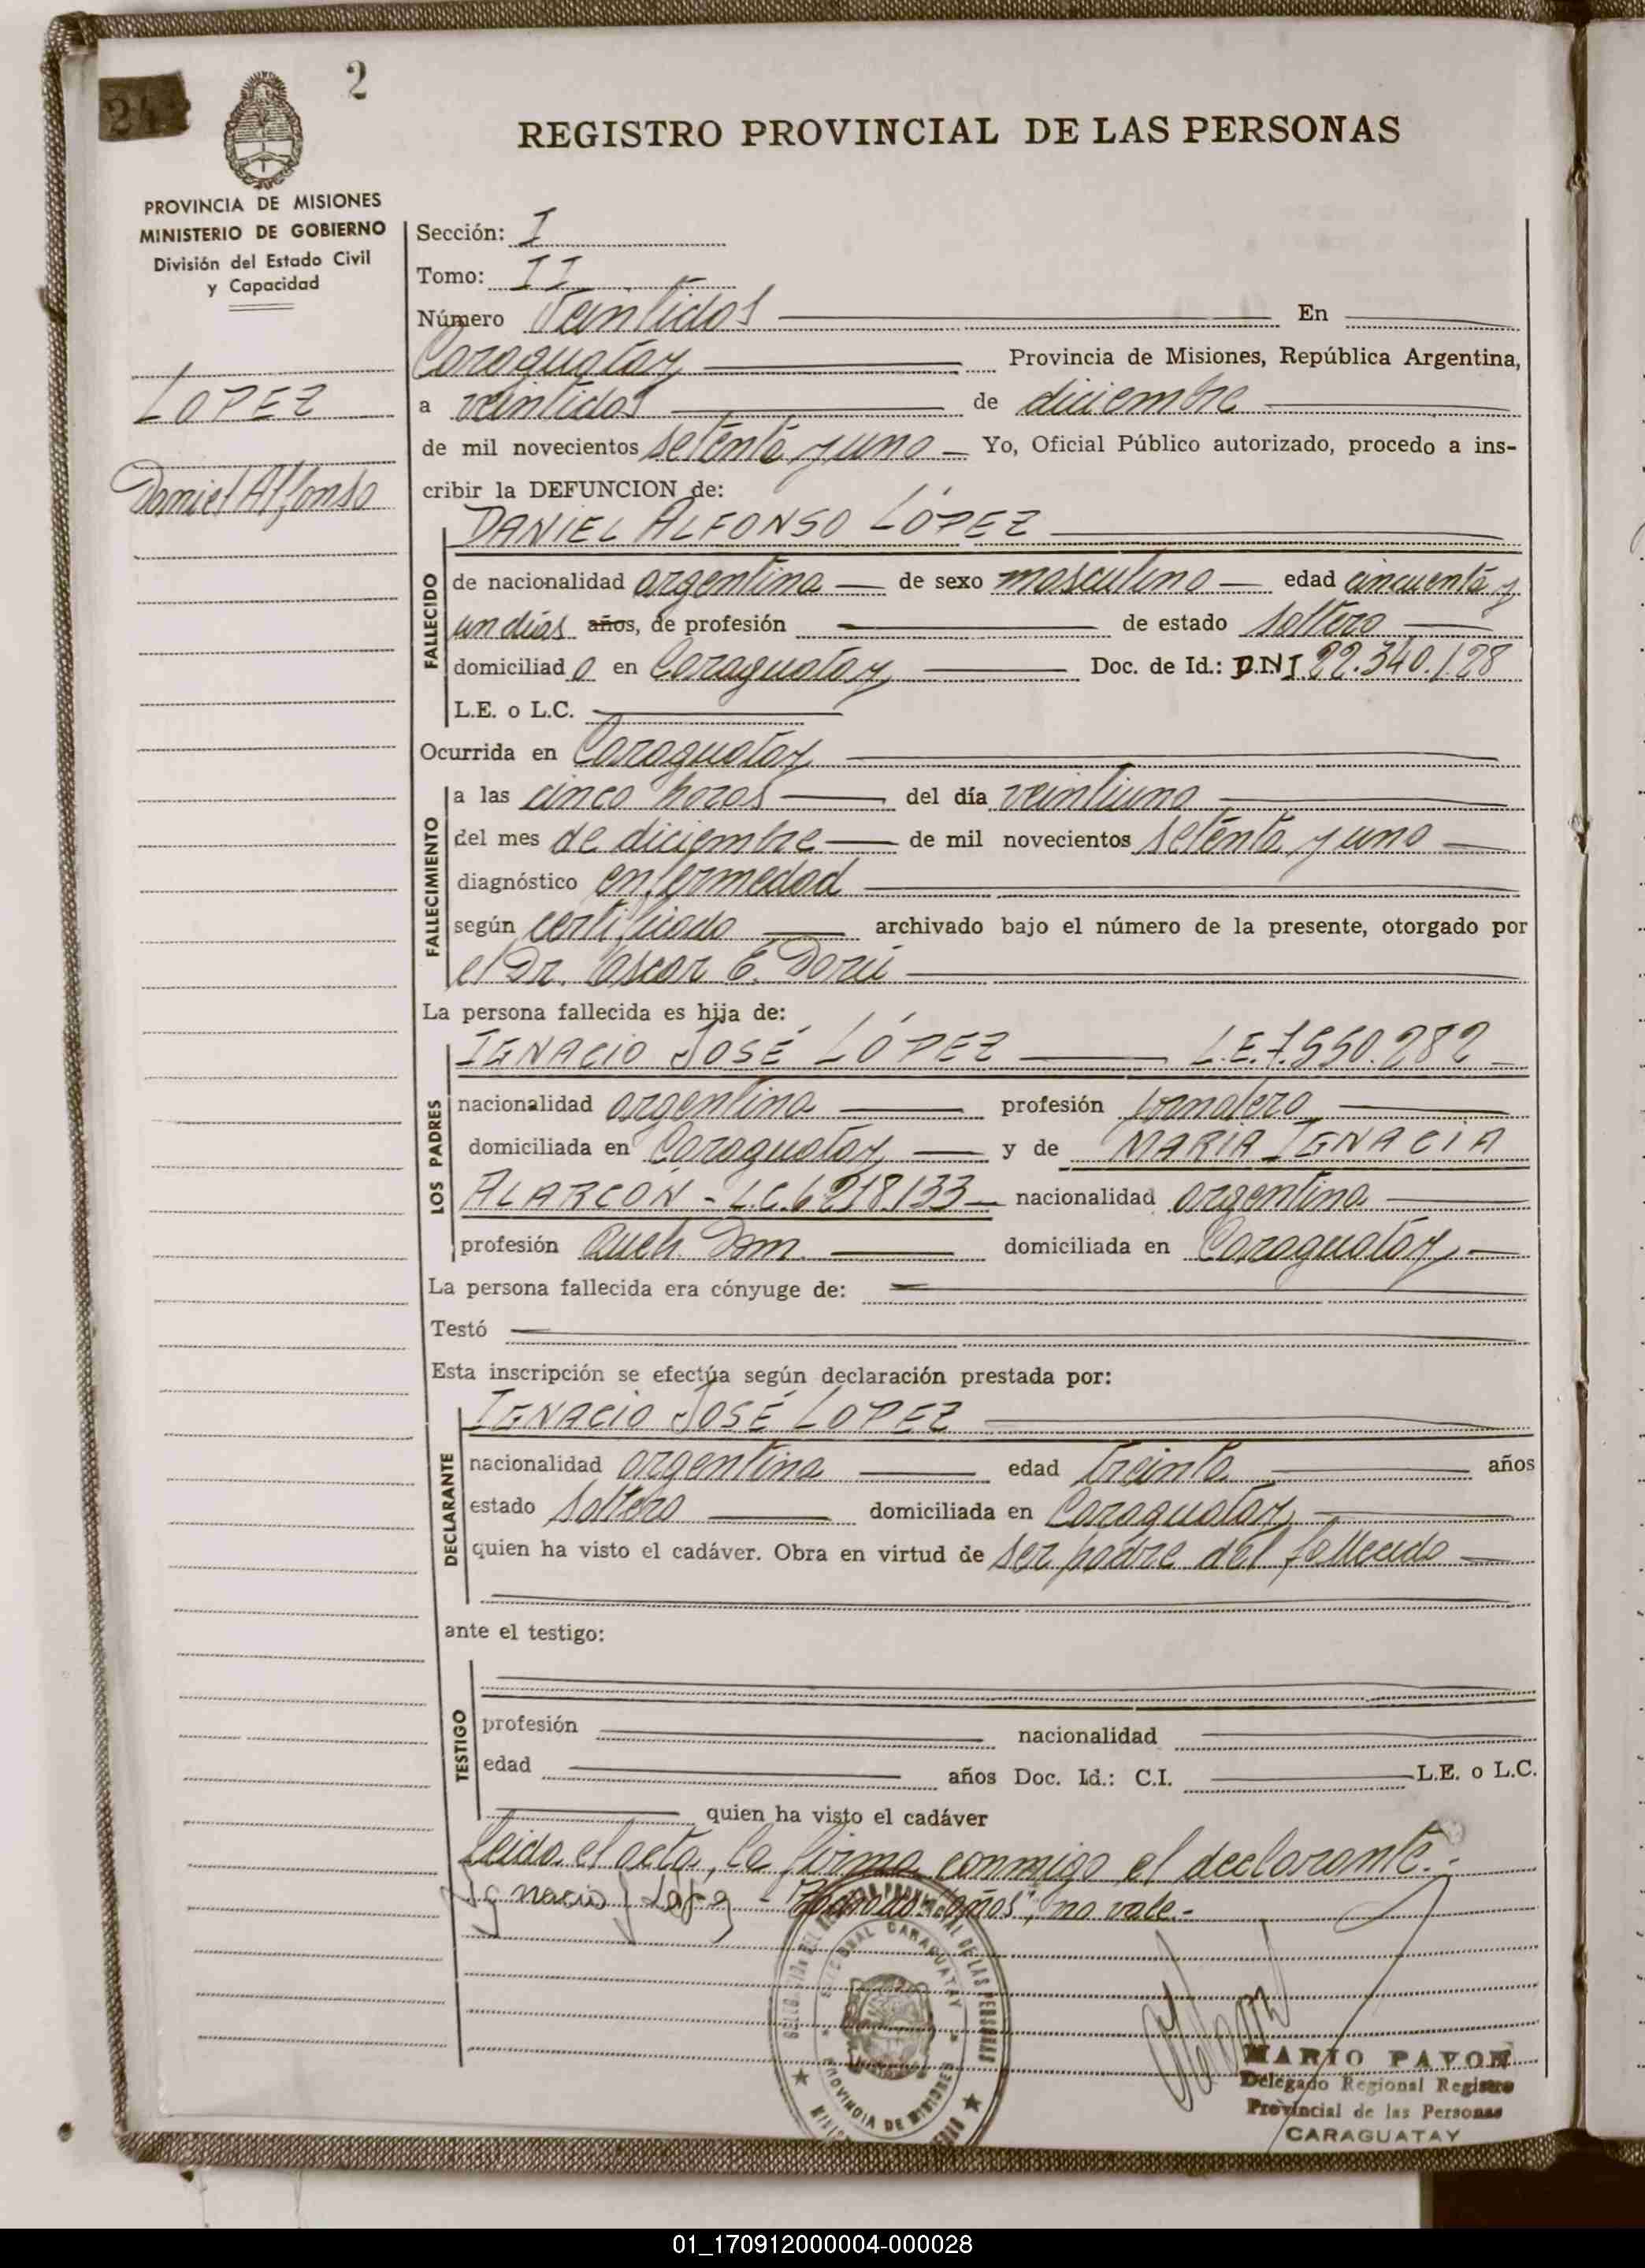 24
2
REGISTRO PROVINCIAL DE LAS PERSONAS
PROVINCIA DE MISIONES
MINISTERIO DE GOBIERNO
División del Estado Civil
y Capacidad
LOPEZ
Daniel Alfonso
Sección: I
Tomo: II
Número Veintidos En
Caraguatay Provincia de Misiones, República Argentina,
a veintidos de diciembre
de mil novecientos setenta y uno Yo, Oficial Público autorizado, procedo a ins-
cribir la DEFUNCION de:
DANIEL ALFONSO LÓPEZ
FALLECIDO
de nacionalidad argentina de sexo masculino edad cincuenta y
un días años, de profesión de estado soltero
domiciliad o en Caraguatay Doc. de Id.: D.N.I 22.340.128
L.E. o L.C.
Ocurrida en Caraguatay
FALLECIMIENTO
a las cinco horas del día veintiuno
del mes de diciembre de mil novecientos setenta y uno
diagnóstico enfermedad
según certificado archivado bajo el número de la presente, otorgado por
el Dr. Oscar E.
La persona fallecida es hija de:
LOS PADRES
IGNACIO JOSÉ LÓPEZ L.E. 7.550.282
nacionalidad argentina profesión jornalero
domiciliada en Caraguatay y de MARIA IGNACIA
ALARCON - L.C. 6218.133 nacionalidad argentina
profesión Queh. Dom. domiciliada en Caraguatay
La persona fallecida era cónyuge de:
Testó
Esta inscripción se efectúa según declaración prestada por:
DECLARANTE
IGNACIO JOSÉ LOPEZ
nacionalidad argentina edad treinta años
estado soltero domiciliada en Caraguatay
quien ha visto el cadáver. Obra en virtud de ser padre del fallecido
ante el testigo:
TESTIGO
profesión nacionalidad
edad años Doc. Id.: C.I. L.E. o L.C.
quien ha visto el cadáver
Leida el acta, la firma conmigo el declarante.-
Ignacio J López - "años", no vale.-
PROVINCIAL DE LAS PERSONAS
CARAGUATAY
PROVINCIA DE MISIONES
MARIO PAVON
Delegado Regional Registro
Provincial de las Personas
CARAGUATAY
01_170912000004-000028